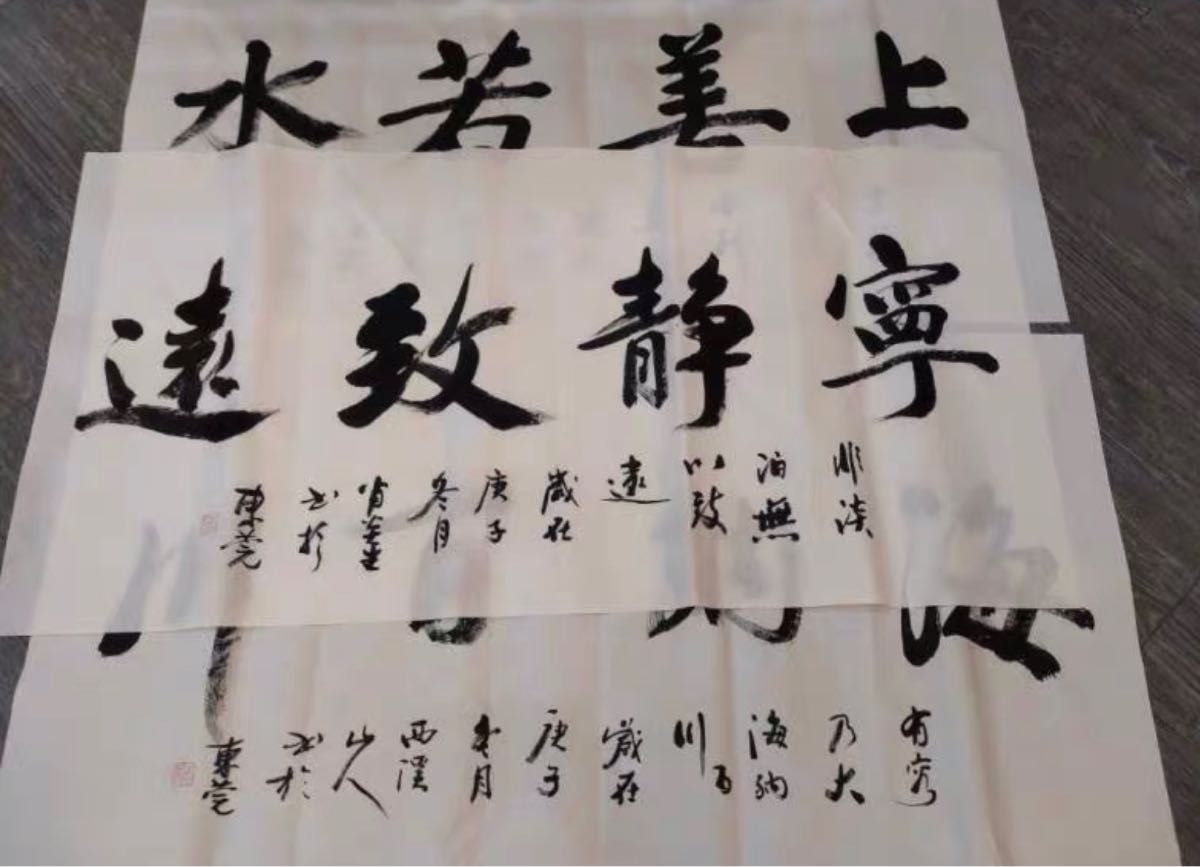 上善若水
寧静致遠
非淡
泊無
以致
遠
歲在
庚子
冬月
书於
東莞
海納百川
有容
乃大
海納
百川
歲在
庚子
冬月
西溪
山人
书於
東莞